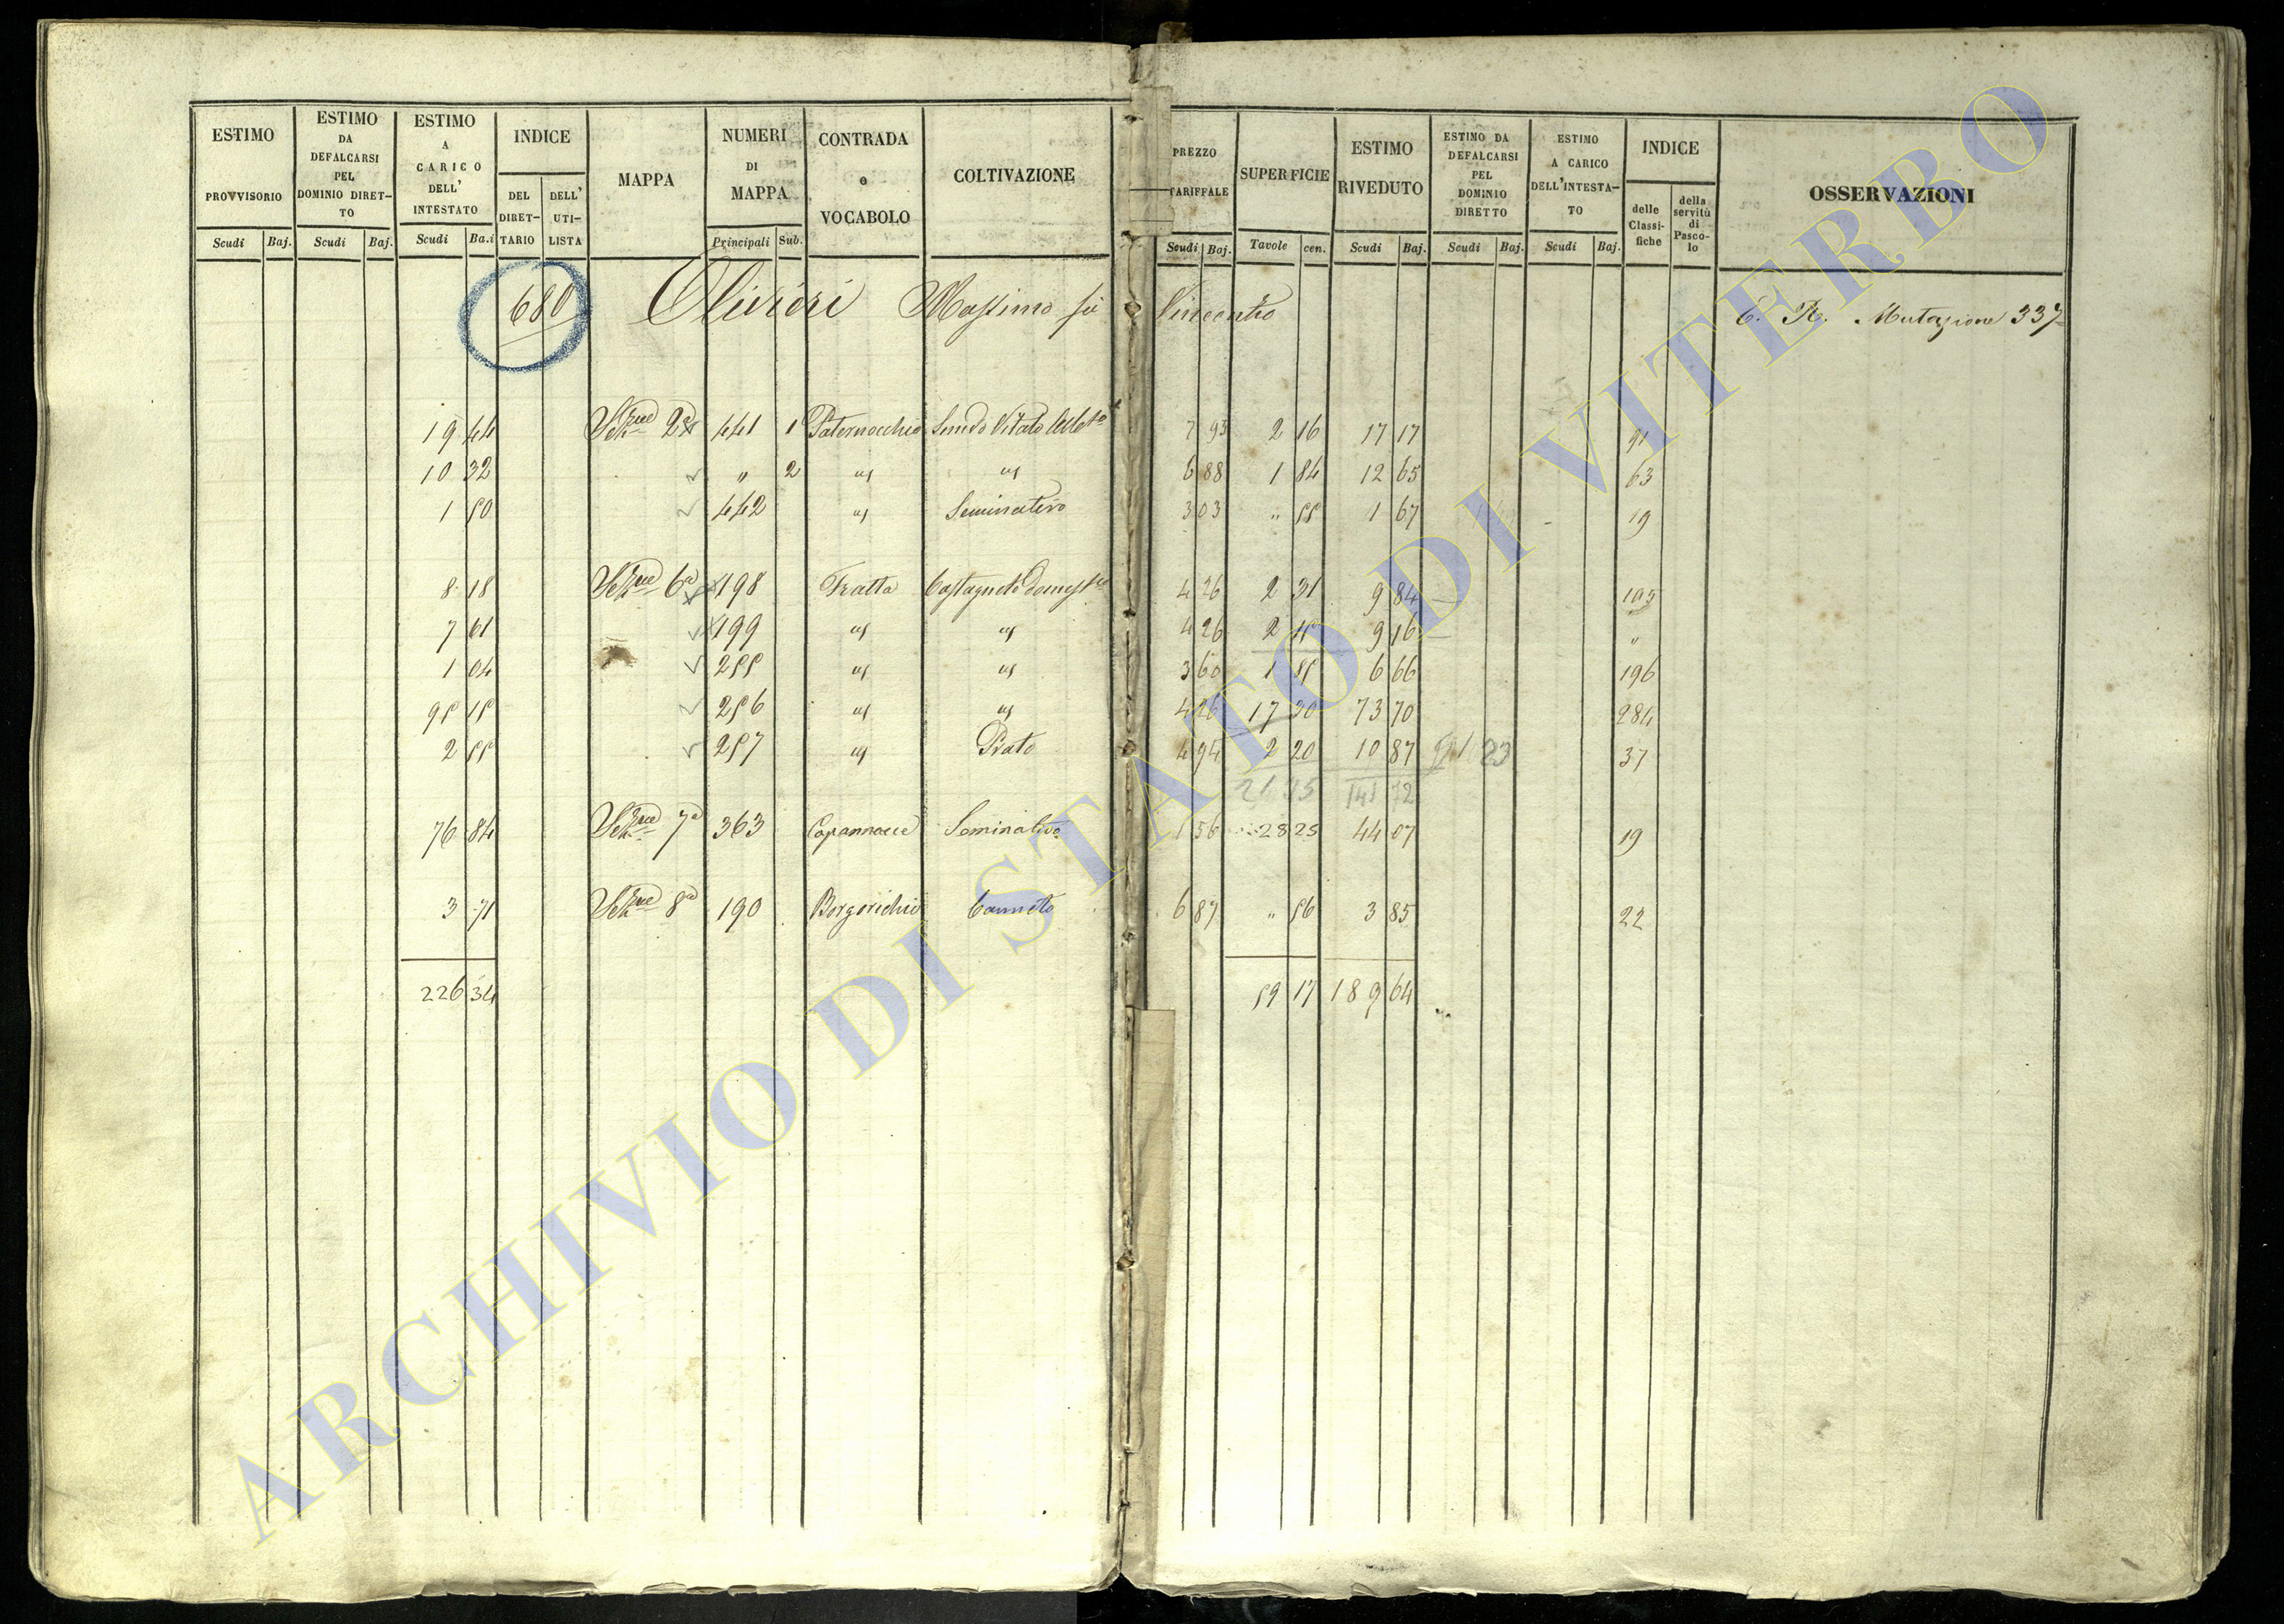 ESTIMO PROVVISORIO Scudi Baj. ESTIMO DA DEFALCARSI PEL DOMINIO DIRET-TO Scudi Baj. ESTIMO A CARICO DELL' INTESTATO Scudi Ba.i INDICE DEL DIRET-TARIO DELL' UTI-LISTA MAPPA NUMERI DI MAPPA Principali Sub. CONTRADA o VOCABOLO COLTIVAZIONE PREZZO TARIFFALE Scudi Baj. SUPERFICIE Tavole cen. ESTIMO RIVEDUTO Scudi Baj. ESTIMO DA DEFALCARSI PEL DOMINIO DIRETTO Scudi Baj. ESTIMO A CARICO DELL'INTESTA-TO Scudi Baj. INDICE delle Classi-fiche della servitù di Pasco-lo OSSERVAZIONI
680 Olivieri Massimo fù Vincenzo C. R. Mutazione 337
19 44 Sezne 2a 441 1 Paternocchio 7 93 2 16 17 17 91
10 32 " 2 " " 6 88 1 84 12 65 63
1 50 442 " Seminativo 3 03 " 55 1 67 19
8 18 Sezne 6a 198 Fratta Castagneto domesto 4 26 2 31 9 84 195
7 61 199 " " 4 26 2 15 9 16 "
1 04 255 " " 3 60 1 85 6 66 196
95 15 256 " " 4 26 17 30 73 70 284
2 55 257 " Prato 4 94 2 20 10 87 37
76 84 Sezne 7a 363 Capannacce Seminativo 1 56 28 25 44 07 19
3 71 Sezne 8a 190 Borgorichio Canneto 6 87 " 56 3 85 22
226 34 59 17 189 64
ARCHIVIO DI STATO DI VITERBO